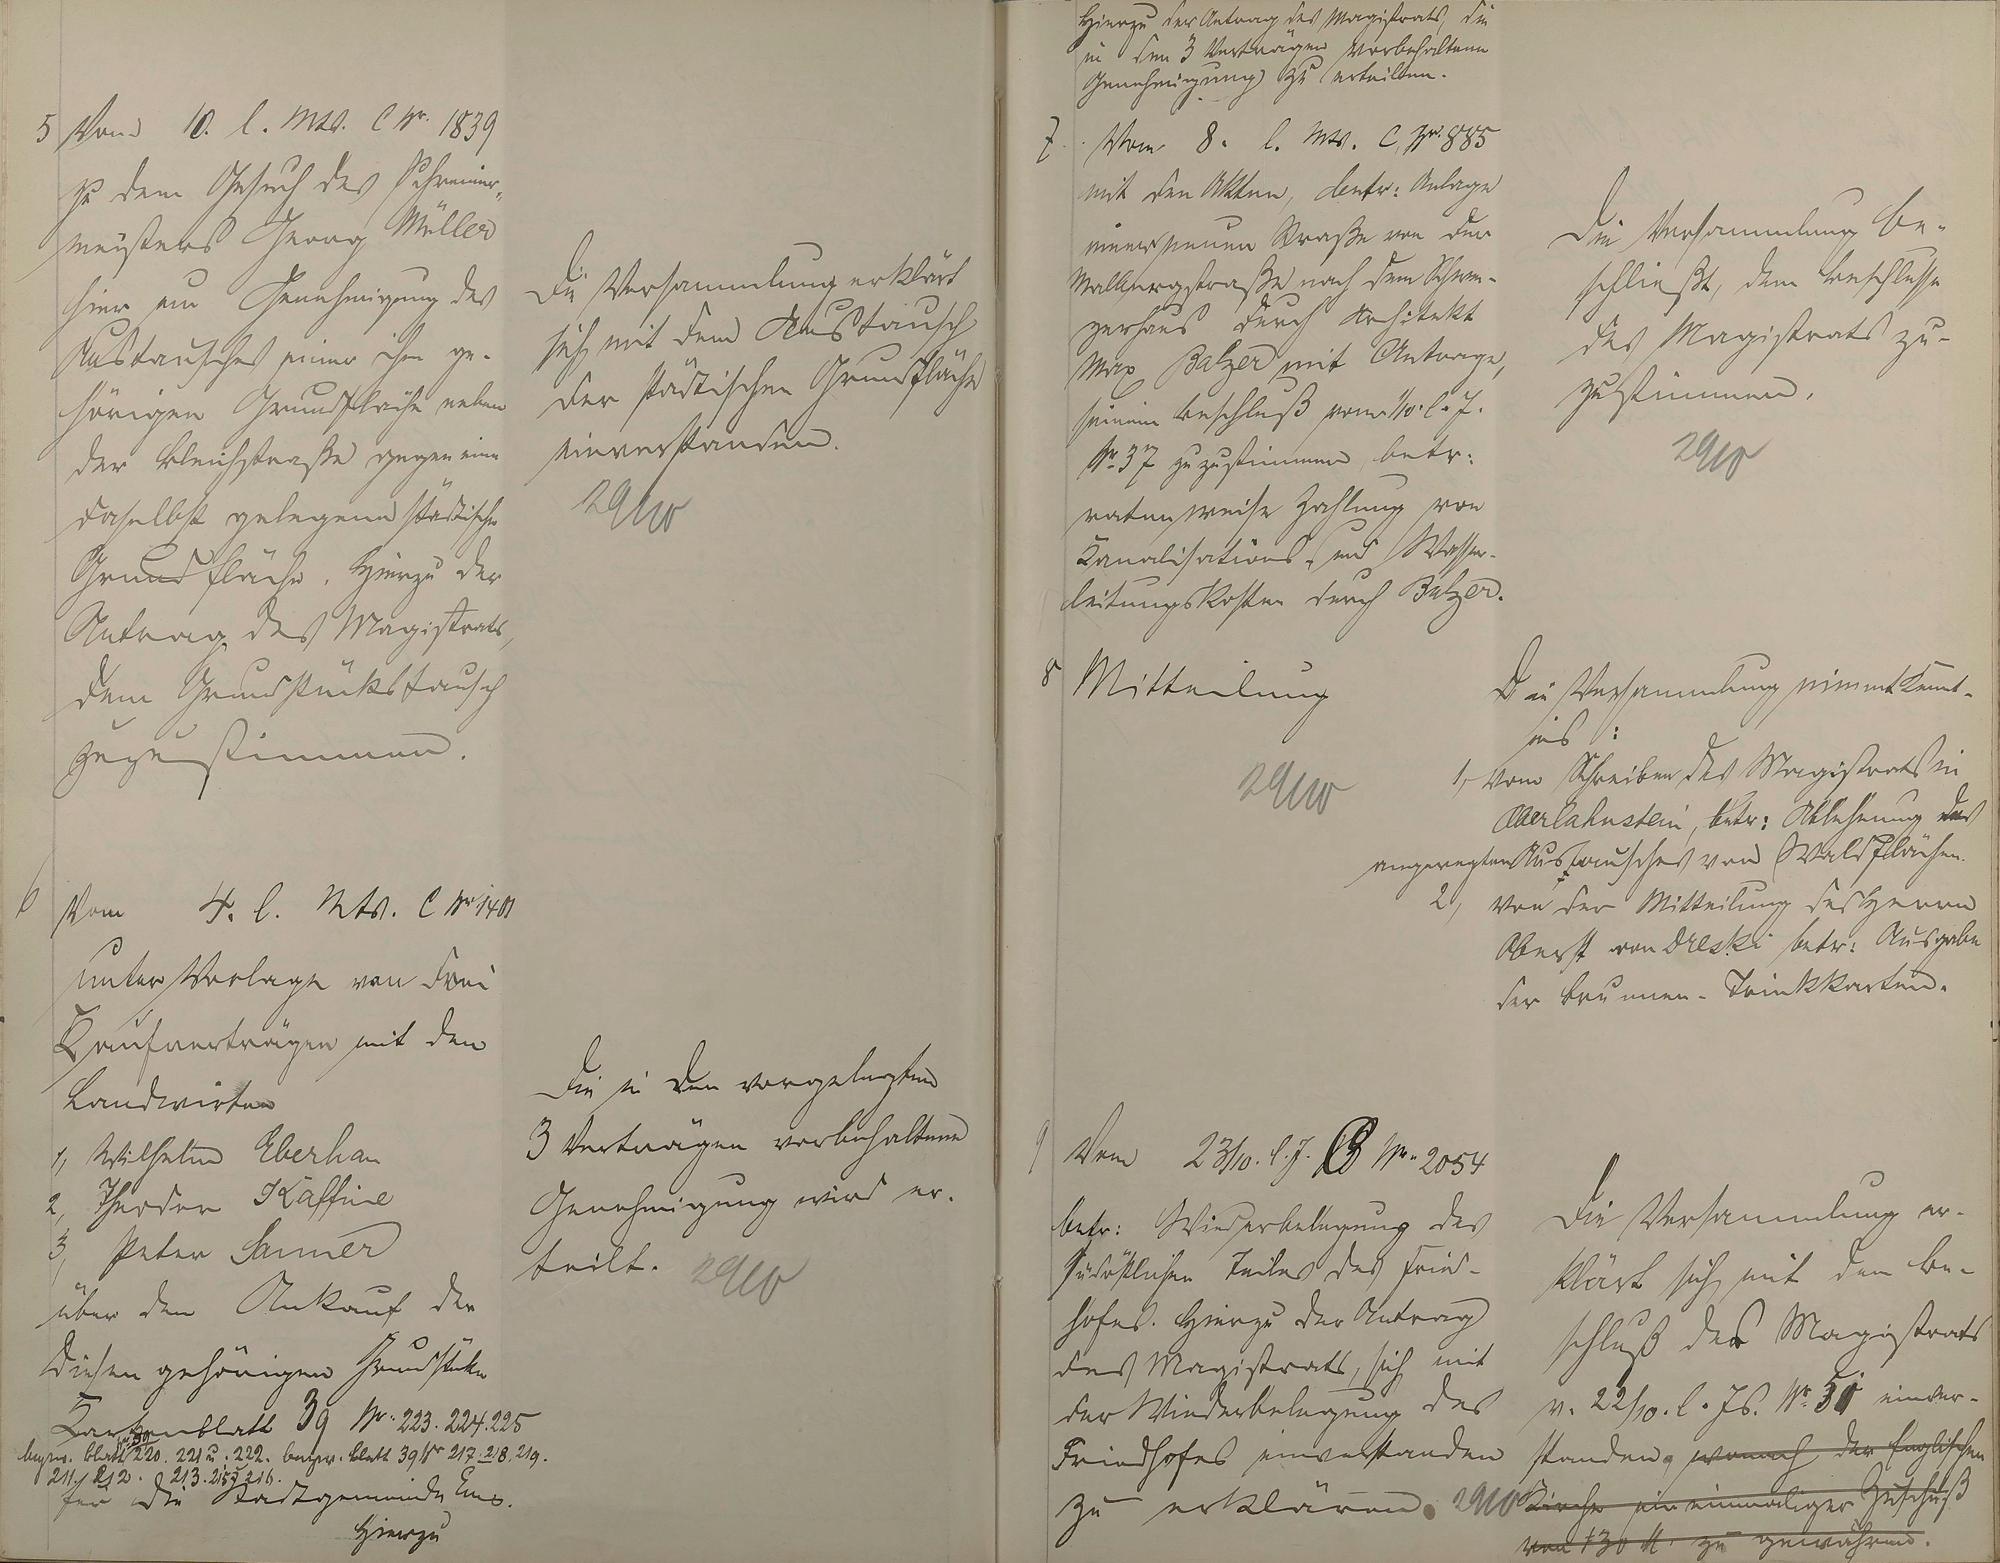 5 Vom 10. l. Mts. C Nr. 1839
zu dem Gesuch des Schreiner-
meisters Georg Müller
hier um Genehmigung des
Austausches einer ihm ge-
hörigen Grundfläche neben
der Bleichstraße gegen eine
daselbst gelegene städtische
Grundfläche. Hierzu der
Antrag des Magistrats,
dem Grundstückstausch
zuzustimmen.
Die Versammlung erklärt
sich mit dem Austausch
der städtischen Grundfläche
einverstanden.
29/10
6 Vom 4. l. Mts. C Nr. 1401
unter Vorlage von drei
Kaufverträgen mit den
Landwirten
1, Wilhelm Eberhan
2, Theodor Kaffine
3, Peter Sanner
über den Ankauf der
diesen gehörigen Grundstücke
Kartenblatt 39 Nr. 223. 224. 225
bezw. Blatt 39 220. 221 u. 222. bezw. Blatt 39 Nr 217. 218. 219.
211, 212. 213. 215 u 216.
für die Stadtgemeinde Ems.
Hierzu
Die in den vorgelegten
3 Verträgen vorbehaltene
Genehmigung wird er-
teilt.
29/10
Hierzu der Antrag des Magistrats, die
in den 3 Verträgen vorbehaltene
Genehmigung zu erteilen.
7. Vom 8. l. Mts. C. Nr. 885
mit den Akten, betr: Anlage
einer neuen Straße von der
Wallbergstraße nach dem Schwei-
zerhaus durch Architekt
Max Balzer mit Antrage,
seinem Beschluß vom 1/10. l. J.
Nr. 37 zuzustimmen betr:
ratenweise Zahlung von
Kanalisations- und Wasser-
leitungskosten durch Balzer.
Die Versammlung be-
schließt, dem Beschlusse
des Magistrats zu-
zustimmen.
29/10
8 Mitteilung
29/10
Die Versammlung nimmt Kennt-
nis:
1, vom Schreiben des Magistrats in
Oberlahnstein, betr: Ablehnung des
angeregten Austausches von Waldflächen.
2, von der Mitteilung des Herrn
Oberst von Dreski betr: Ausgabe
der Brunnen-Trinkkarten.
9 Vom 23/10. l. J. B Nr. 2054
betr: Wiederbelegung des
südöstlichen Teiles des Fried-
hofes. Hierzu der Antrag
des Magistrats, sich mit
der Wiederbelegung des
Friedhofes einverstanden
zu erklären.
29/10
Die Versammlung er-
klärt sich mit dem Be-
schluß des Magistrats
v. 22/10. l. Js. Nr. 51 einver-
standen, wonach der Englischen
Kirche ein einmaliger Zuschuß
von 130 M. zu gewähren.